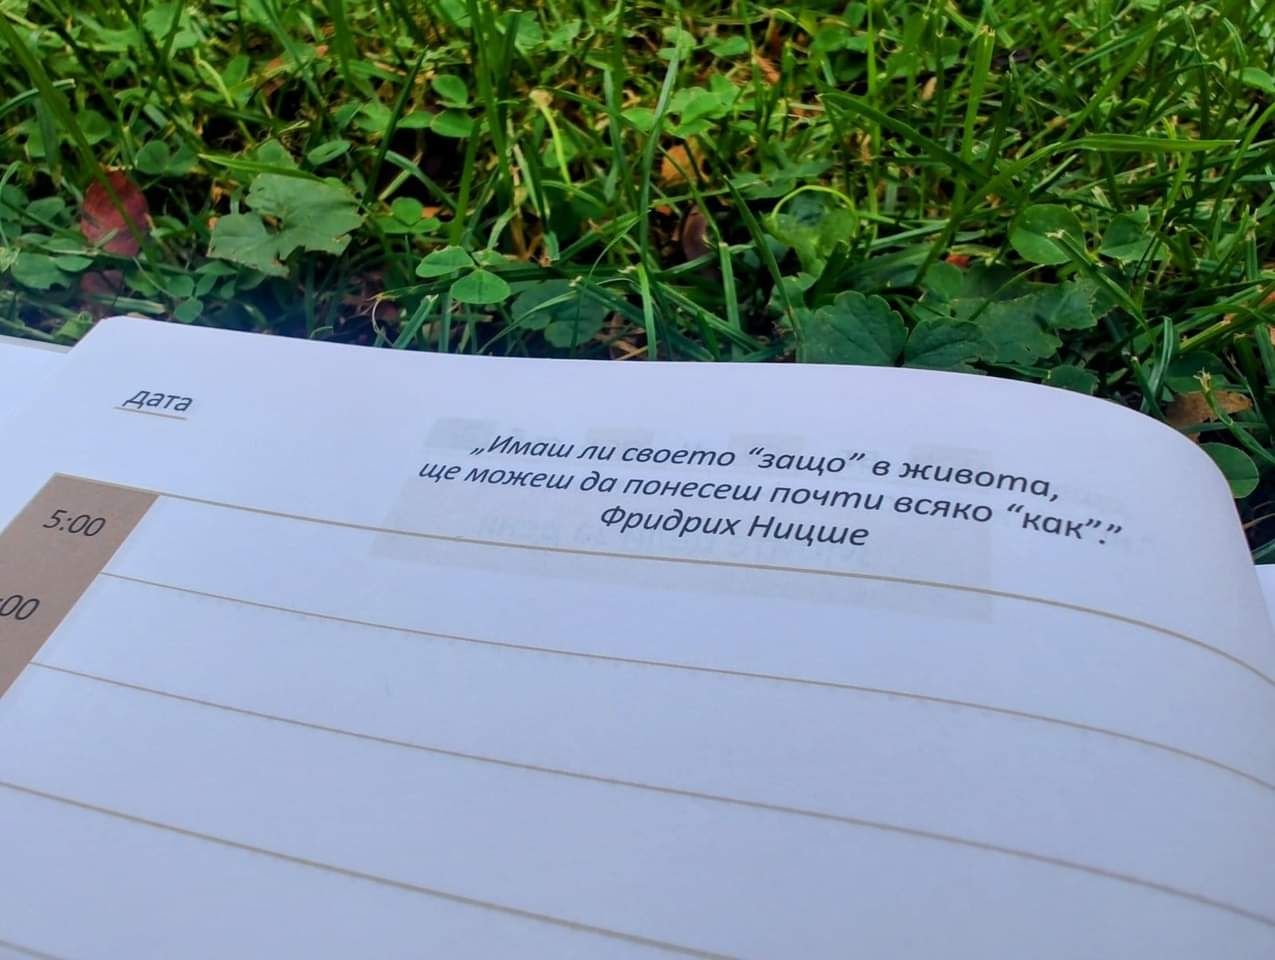 дата
„Имаш ли своето “защо” в живота,
ще можеш да понесеш почти всяко “как”.”
Фридрих Ницше
5:00
:00